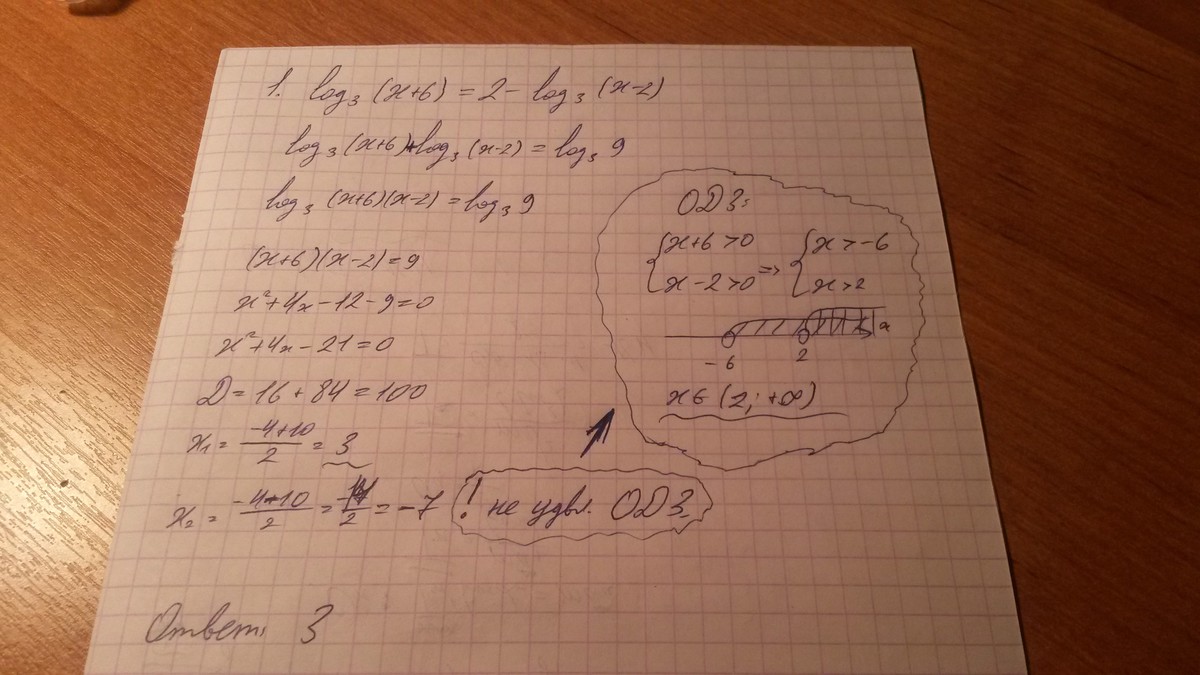 1. log₃(x+6) = 2 - log₃(x-2)
log₃(x+6)+log₃(x-2) = log₃ 9
log₃(x+6)(x-2) = log₃ 9
(x+6)(x-2)=9
x²+4x-12-9=0
x²+4x-21=0
D=16+84=100
x₁ = (-4+10)/2 = 3
x₂ = (-4-10)/2 = -14/2 = -7 ! не удвл. ОДЗ.
ОДЗ:
{x+6>0 => {x>-6
{x-2>0 {x>2
-6 2 x
x∈(2; +∞)
Ответ: 3